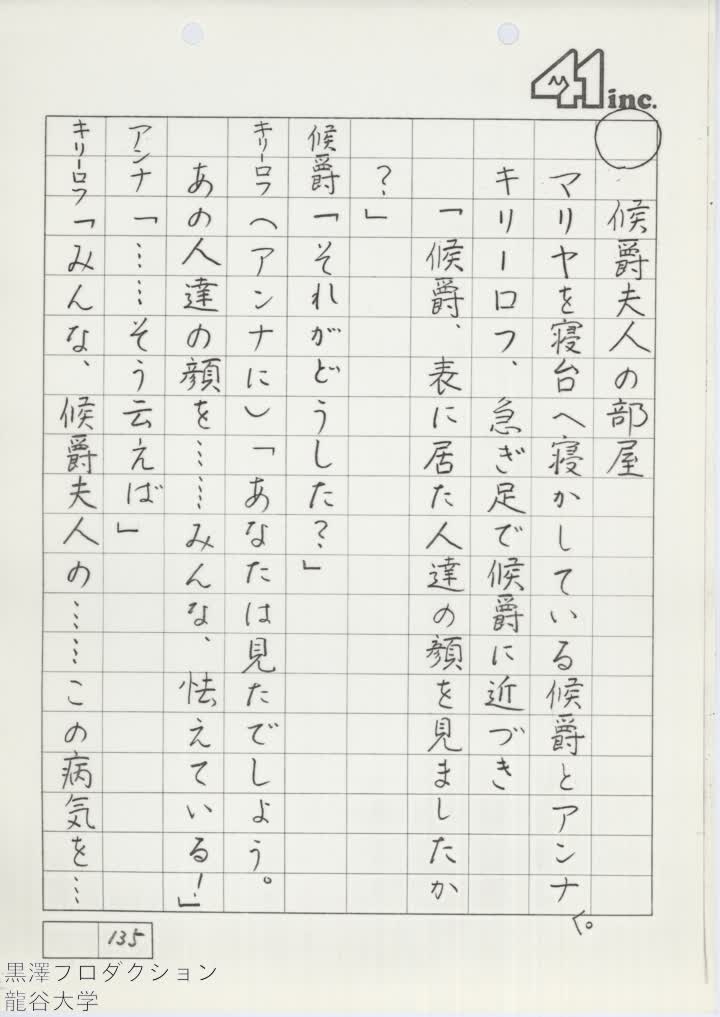 41 inc.
○ 候爵夫人の部屋
マリヤを寝台へ寝かしている候爵とアンナ。
キリーロフ、急ぎ足で候爵に近づき
「候爵、表に居た人達の顔を見ましたか
?」
候爵「それがどうした?」
キリーロフ(アンナに)「あなたは見たでしょう。
あの人達の顔を……みんな、怯えている!」
アンナ「……そう云えば」
キリーロフ「みんな、候爵夫人の……この病気を…
135
黒澤フロダクション
龍谷大学